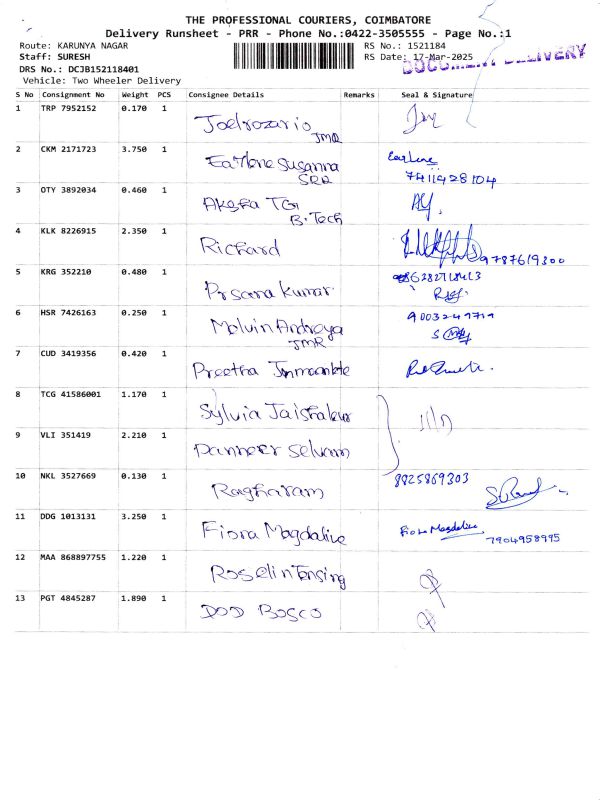 THE PROFESSIONAL COURIERS, COIMBATORE
Delivery Runsheet - PRR - Phone No.:0422-3505555 - Page No.:1
Route: KARUNYA NAGAR
RS No.: 1521184
Staff: SURESH
RS Date: 17-Mar-2025
DOCUMENT DELIVERY
DRS No.: DCJB152118401
Vehicle: Two Wheeler Delivery
S No Consignment No Weight PCS Consignee Details Remarks Seal & Signature
1 TRP 7952152 0.170 1 Joelrozario
JMR
2 CKM 2171723 3.750 1 Earlene Susanna Earlene
SRR 7411428104
3 OTY 3892034 0.460 1
B.Tech
4 KLK 8226915 2.350 1 Richard 9787619300
5 KRG 352210 0.480 1 Prsana Kumar
6 HSR 7426163 0.250 1 Melvin
JMR
7 CUD 3419356 0.420 1 Preetha
8 TCG 41586001 1.170 1 Sylvia
9 VLI 351419 2.210 1 Panneer Selvam
10 NKL 3527669 0.130 1 Ragharam 8825869303
11 DDG 1013131 3.250 1 Fiona Magdaline Fiona Magdaline
7904958995
12 MAA 868897755 1.220 1 Roselin Tensing
13 PGT 4845287 1.890 1 DOD BOSCO